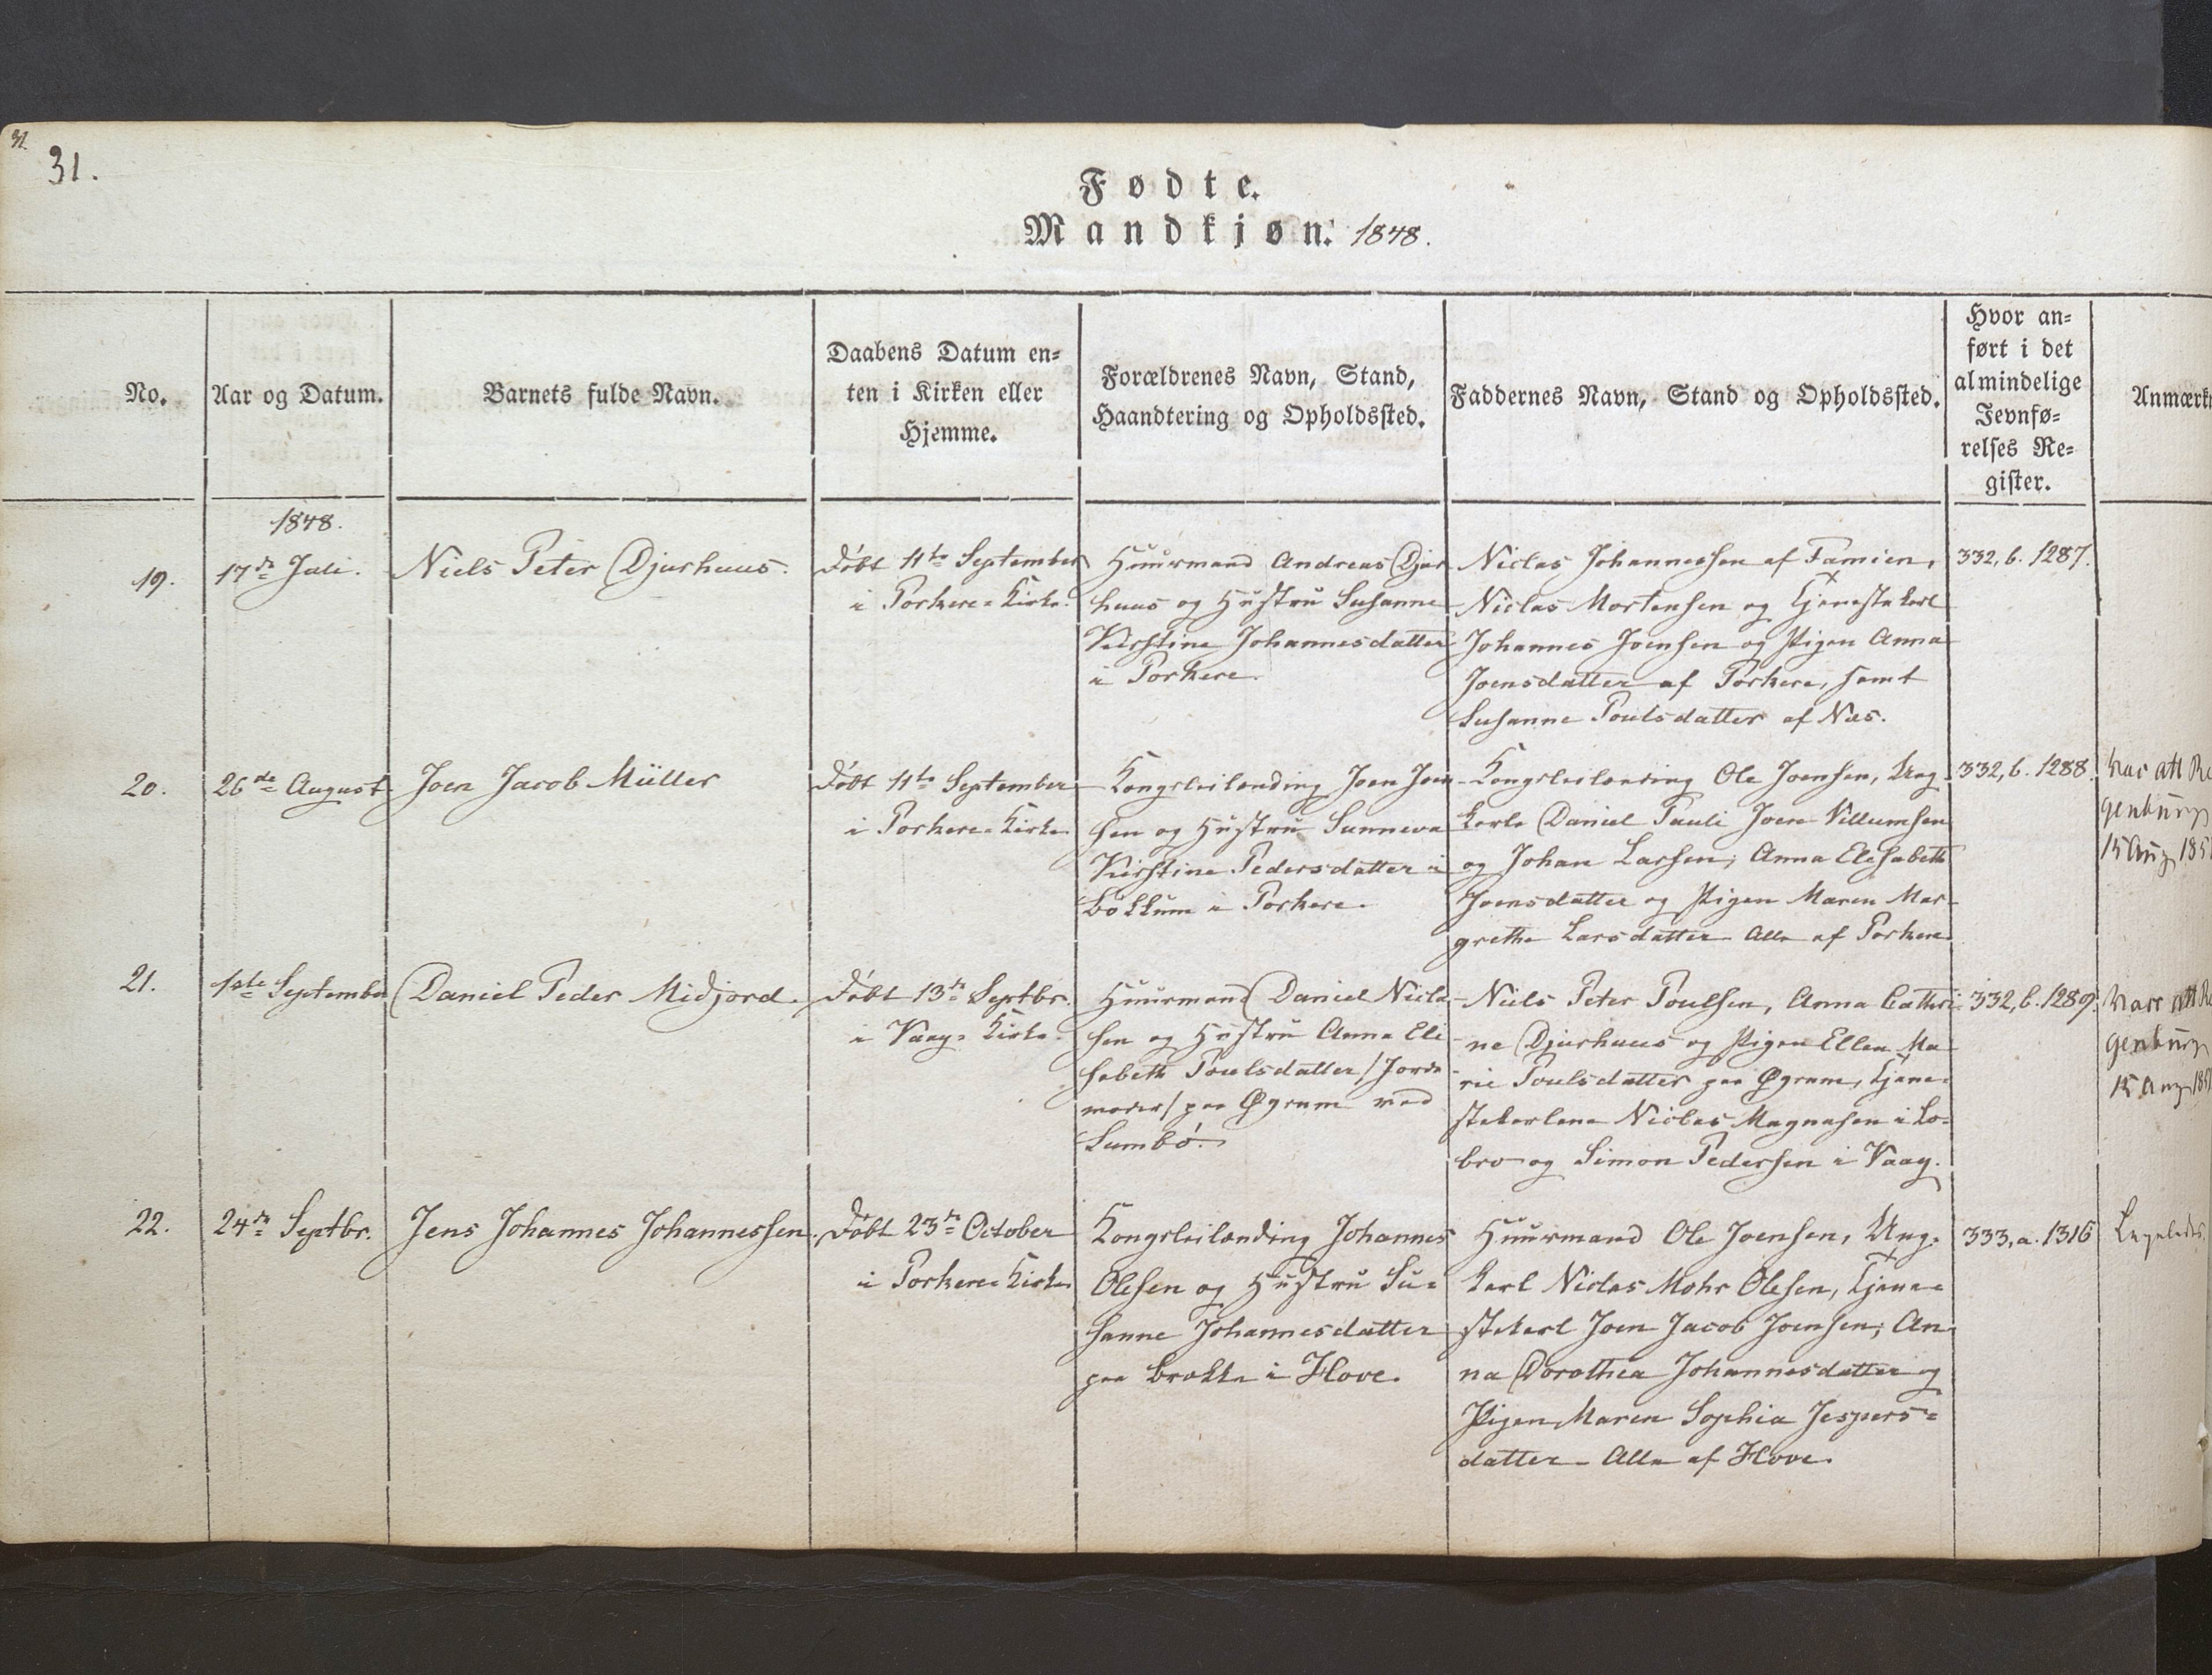 31.
31.
Fødte.
Mandkjøn. 1848.
No.
Aar og Datum.
Barnets fulde Navn.
Daabens Datum en=
ten i Kirken eller
Hjemme.
Forældrenes Navn, Stand,
Haandtering og Opholdssted.
Faddernes Navn, Stand og Opholdssted.
Hvor an=
ført i det
almindelige
Jevnfø=
relses Re=
gister.
Anmærk
1848.
19.
17de Juli.
Niels Peter Djurhuus.
Døbt 11te September
i Porkere=Kirke.
Huusmand Andreas Djur
huus og Hustru Susanne
Kirstine Johannesdatter
i Porkere.
Niclas Johannessen af Famien,
Niclas Mortensen og Tjenestekarl
Johannes Joensen og Pigen Anna
Joensdatter af Porkere, samt
Susanne Poulsdatter af Næs.
332, b. 1287.
20.
26de August
Joen Jacob Müller
Døbt 11te September
i Porkere=Kirke
Kongsleilænding Joen Joen
sen og Hustru Sunneva
Kirstine Pedersdatter i
Bökkum i Porkere.
Kongsleilænding Ole Joensen, Ung
karle Daniel Pauli Joen Villumsen
og Johan Larsen; Anna Elisabeth
Joensdatter og Pigen Maren Mar-
grethe Larsdatter Alle af Porkere
332, b. 1288.
15 Aug 185
21.
1ste September
Daniel Peder Midjord.
Døbt 13de Septbr.
i Vaag=Kirke.
Huusmand Daniel Nicla
sen og Hustru Anna Eli
sabeth Poulsdatter /Jorde
moder/ paa Øgrum ved
Sumbø.
Niels Peter Poulsen, Anna Cathri-
ne Djurhuus og Pigen Ellen Ma
rie Poulsdatter paa Øgrum, Tjene-
stekarlene Niclas Magnusen i Lo-
bro og Simon Pedersen i Vaag.
332, b. 1289.
15 Aug 185
22.
24de Septbr.
Jens Johannes Johannessen.
Døbt 23de October
i Porkere=Kirke
Kongsleilænding Johannes
Olesen og Hustru Su=
sanne Johannesdatter
paa Brekke i Hove.
Huusmand Ole Joensen, Ung=
karl Niclas Mohr Olesen, Tjene=
stekarl Joen Jacob Joensen; An=
na Dorothea Johannesdatter og
Pigen Maren Sophia Jespers=
datter - Alle af Hove.
333, a. 1316